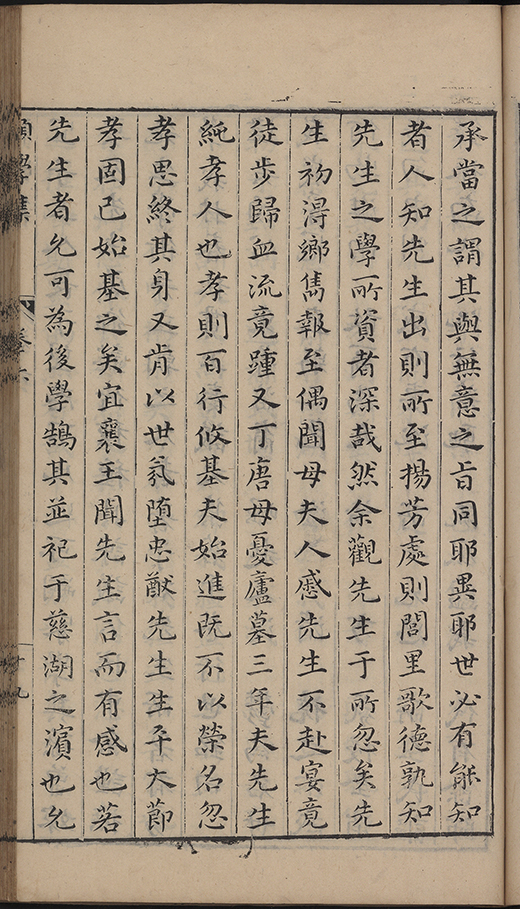 承當之謂其與無意之旨同耶異耶世必有能知
者人知先生出則所至揚芳處則閭里歌德孰知
先生之學所資者深哉然余觀先生于所忽矣先
生初得鄉雋報至偶聞母夫人慼先生不赴宴竟
徒步歸血流竟踵又丁唐母憂廬墓三年夫先生
純孝人也孝則百行攸基夫始進既不以榮名忽
孝思終其身又肯以世氛墮忠猷先生生平大節
孝固已始基之矣宜襄王聞先生言而有感也若
先生者允可為後學鵠其並祀于慈湖之濱也允
學集
卷六
十九